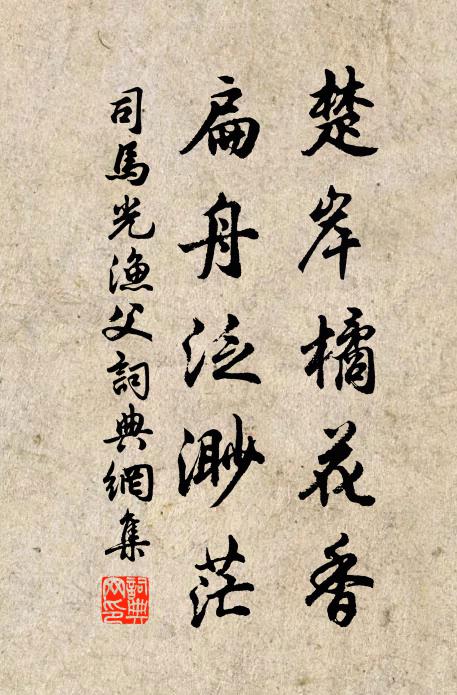 楚岸橘花香
扁舟泛渺茫
司馬光漁父詞典網集
詞典网印